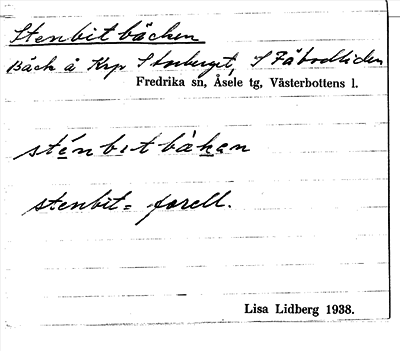 Stenbitbäcken
Bäck å Krp Storberget, S Fäbodliden
Fredrika sn, Åsele tg, Västerbottens l.
sténbıtbàkan
stenbit = forell.
Lisa Lidberg 1938.